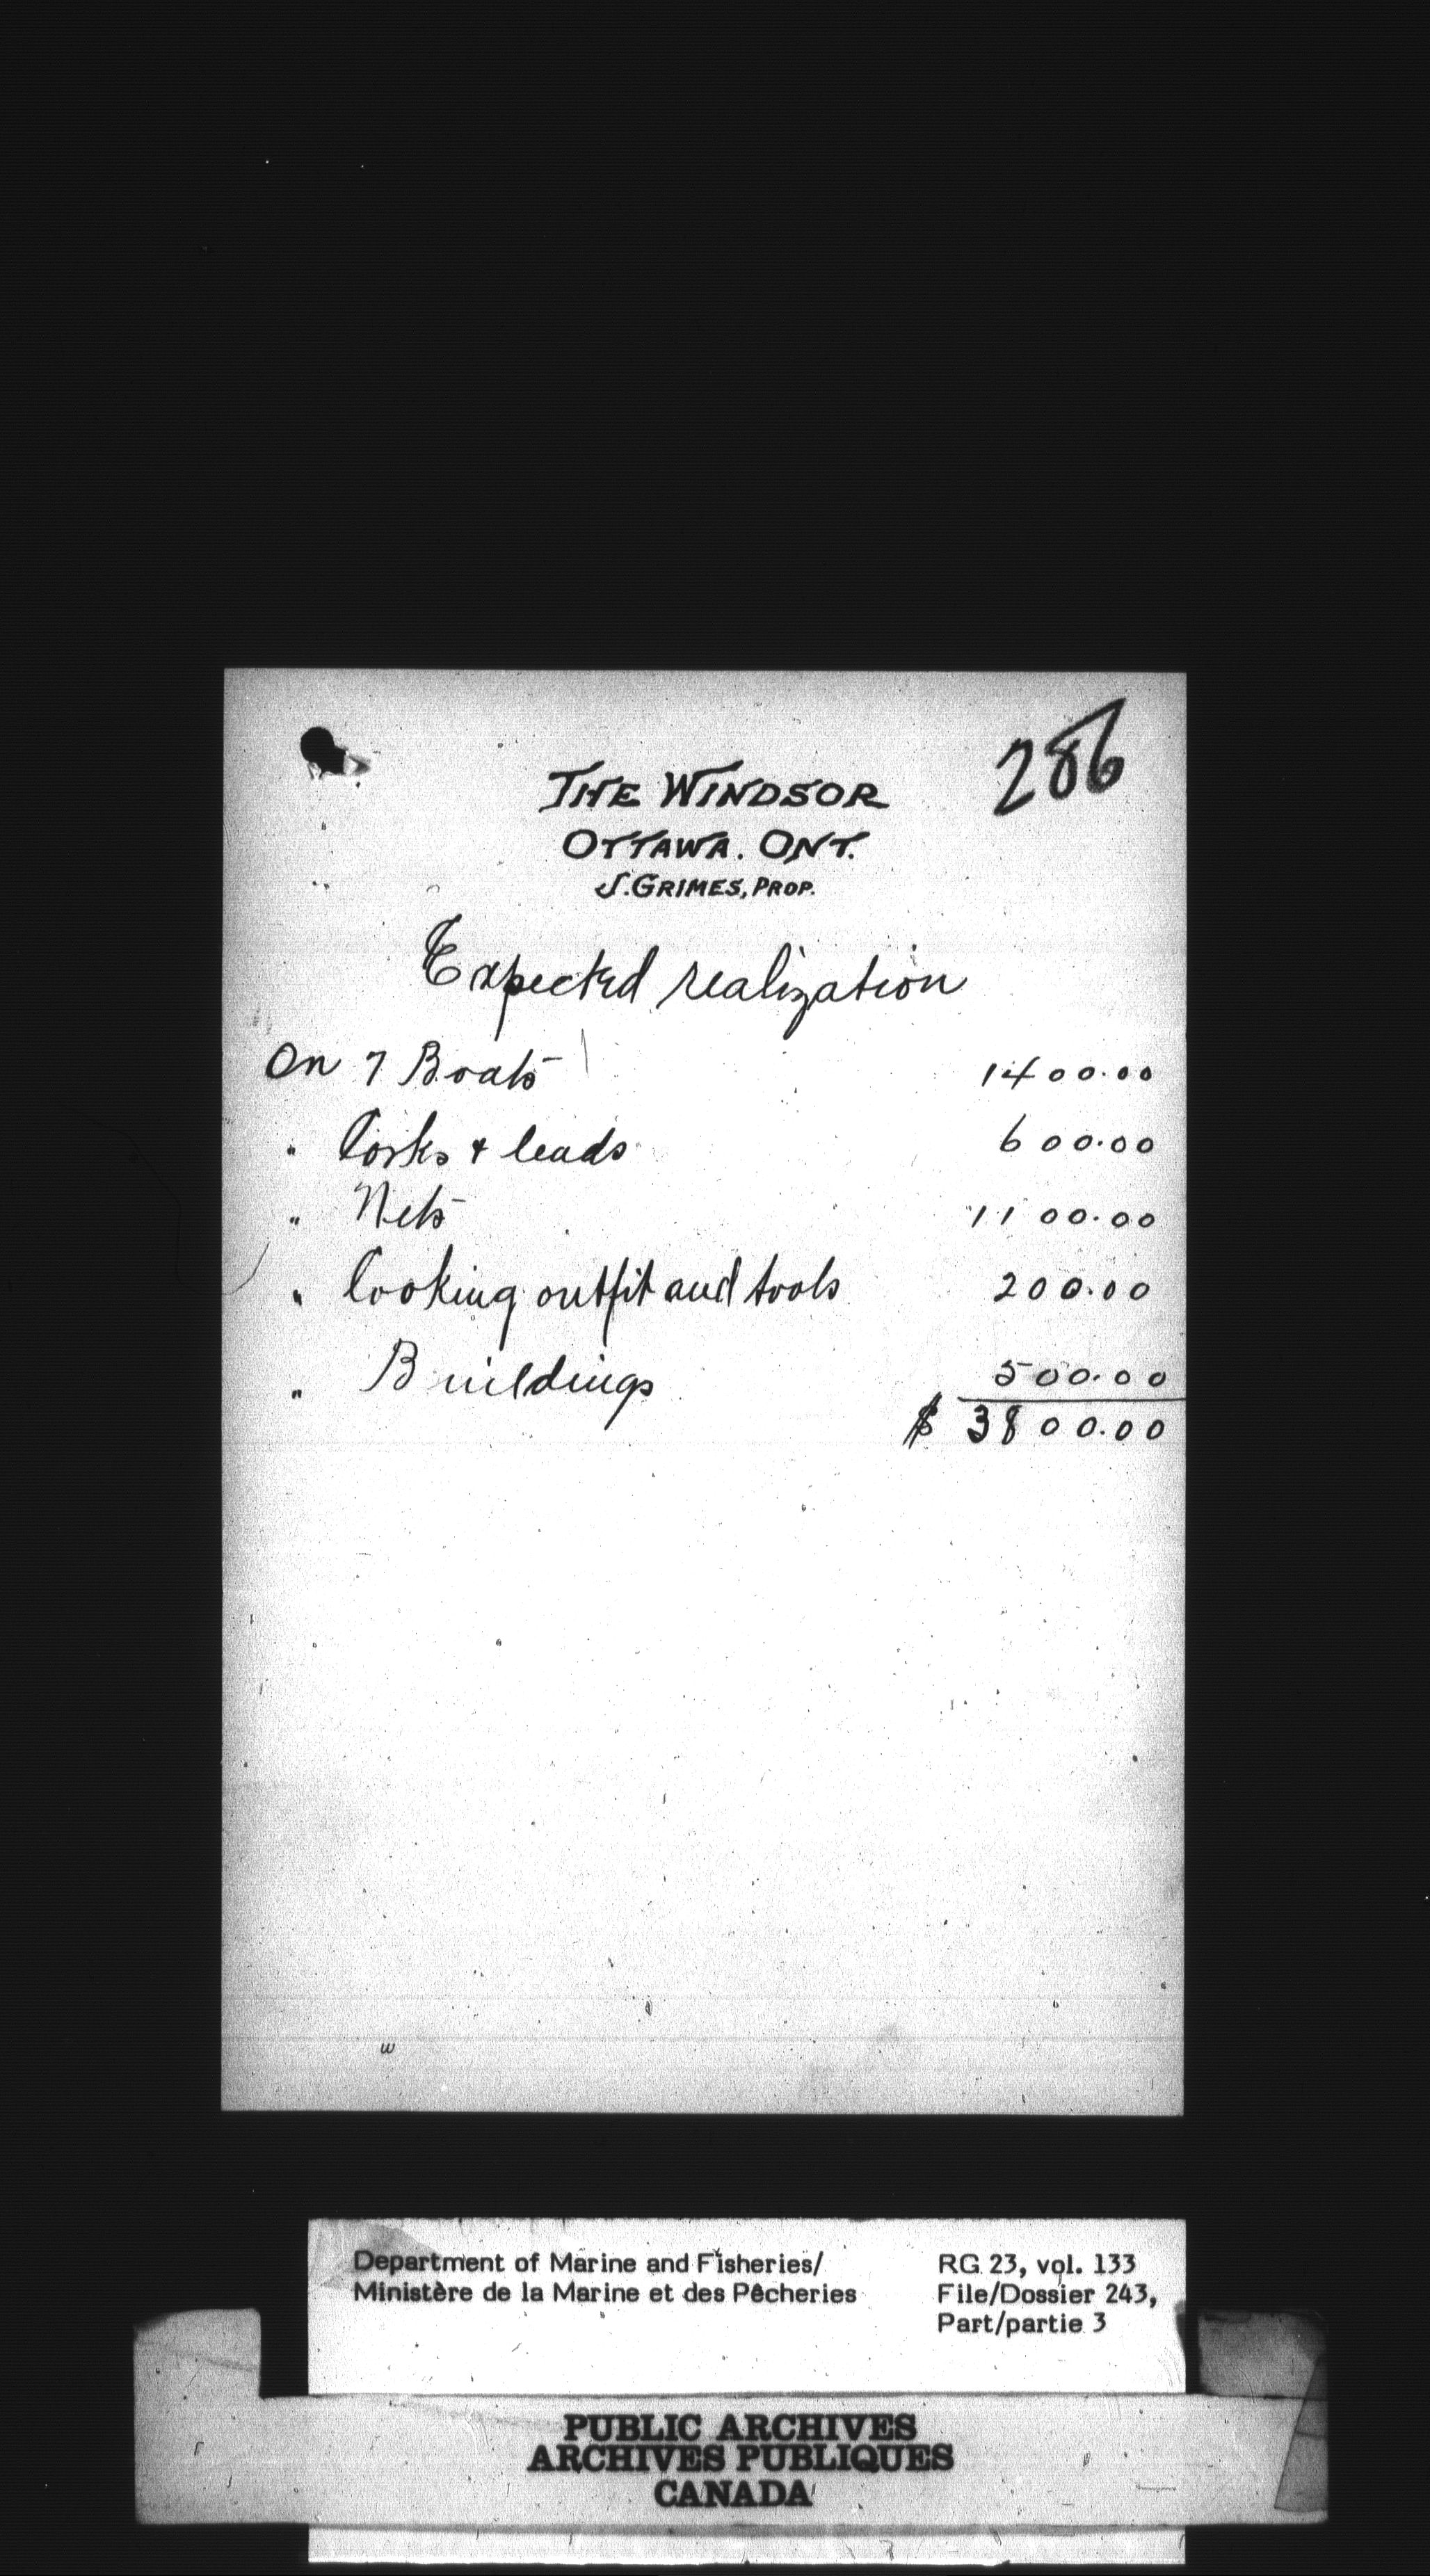 286
THE WINDSOR
OTTAWA. ONT.
J. GRIMES, PROP.
Expected realization
On 7 Boats 1400.00
" Corks & leads 600.00
" Nets 1100.00
" Cooking outfit and tools 200.00
" Buildings 500.00
$ 3800.00
Department of Marine and Fisheries/ RG 23, vol. 133
Ministère de la Marine et des Pêcheries File/Dossier 243,
Part/partie 3
PUBLIC ARCHIVES
ARCHIVES PUBLIQUES
CANADA